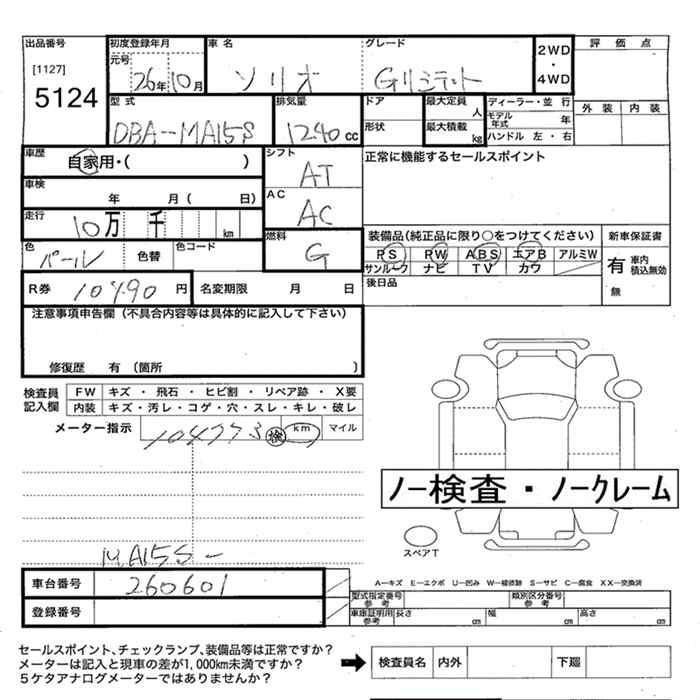 出品番号 初度登録年月 車名 グレード 2WD・4WD 評価点
[1127] 元号 26年10月 ソリオ Gリミテット
5124
型式 排気量 ドア 最大定員 人 ディーラー・並行 外装 内装
DBA-MA15S 1240cc 形状 最大積載 kg モデル年式 年
ハンドル 左・右
車歴 シフト 正常に機能するセールスポイント
自家用・( ) AT
車検 年 月(日) AC
走行 10万 千 km AC
色 パール 色替 色コード 燃料 G
装備品(純正品に限り○をつけてください) 新車保証書
PS PW ABS エアB アルミW 有 車内積込無効
サンルーフ ナビ TV カワ 無
R券 10490円 名変期限 月 日 後日品
注意事項申告欄(不具合内容等は具体的に記入して下さい)
修復歴 有(箇所 )
検査員記入欄 FW キズ・飛石・ヒビ割・リペア跡・X要
内装 キズ・汚レ・コゲ・穴・スレ・キレ・破レ
メーター指示 104773 検 km マイル
ノー検査・ノークレーム
スペアT
MA15S-
車台番号 260601
登録番号
A―キズ E―エクボ U―凹み W―補修跡 S―サビ C―腐食 XX―交換済
型式指定番号 参考 類別区分番号 参考
車庫証明用 参考 長さ cm 幅 cm 高さ cm
セールスポイント、チェックランプ、装備品等は正常ですか?
メーターは記入と現車の差が1,000km未満ですか?
5ケタアナログメーターではありませんか?
検査員名 内外 下廻